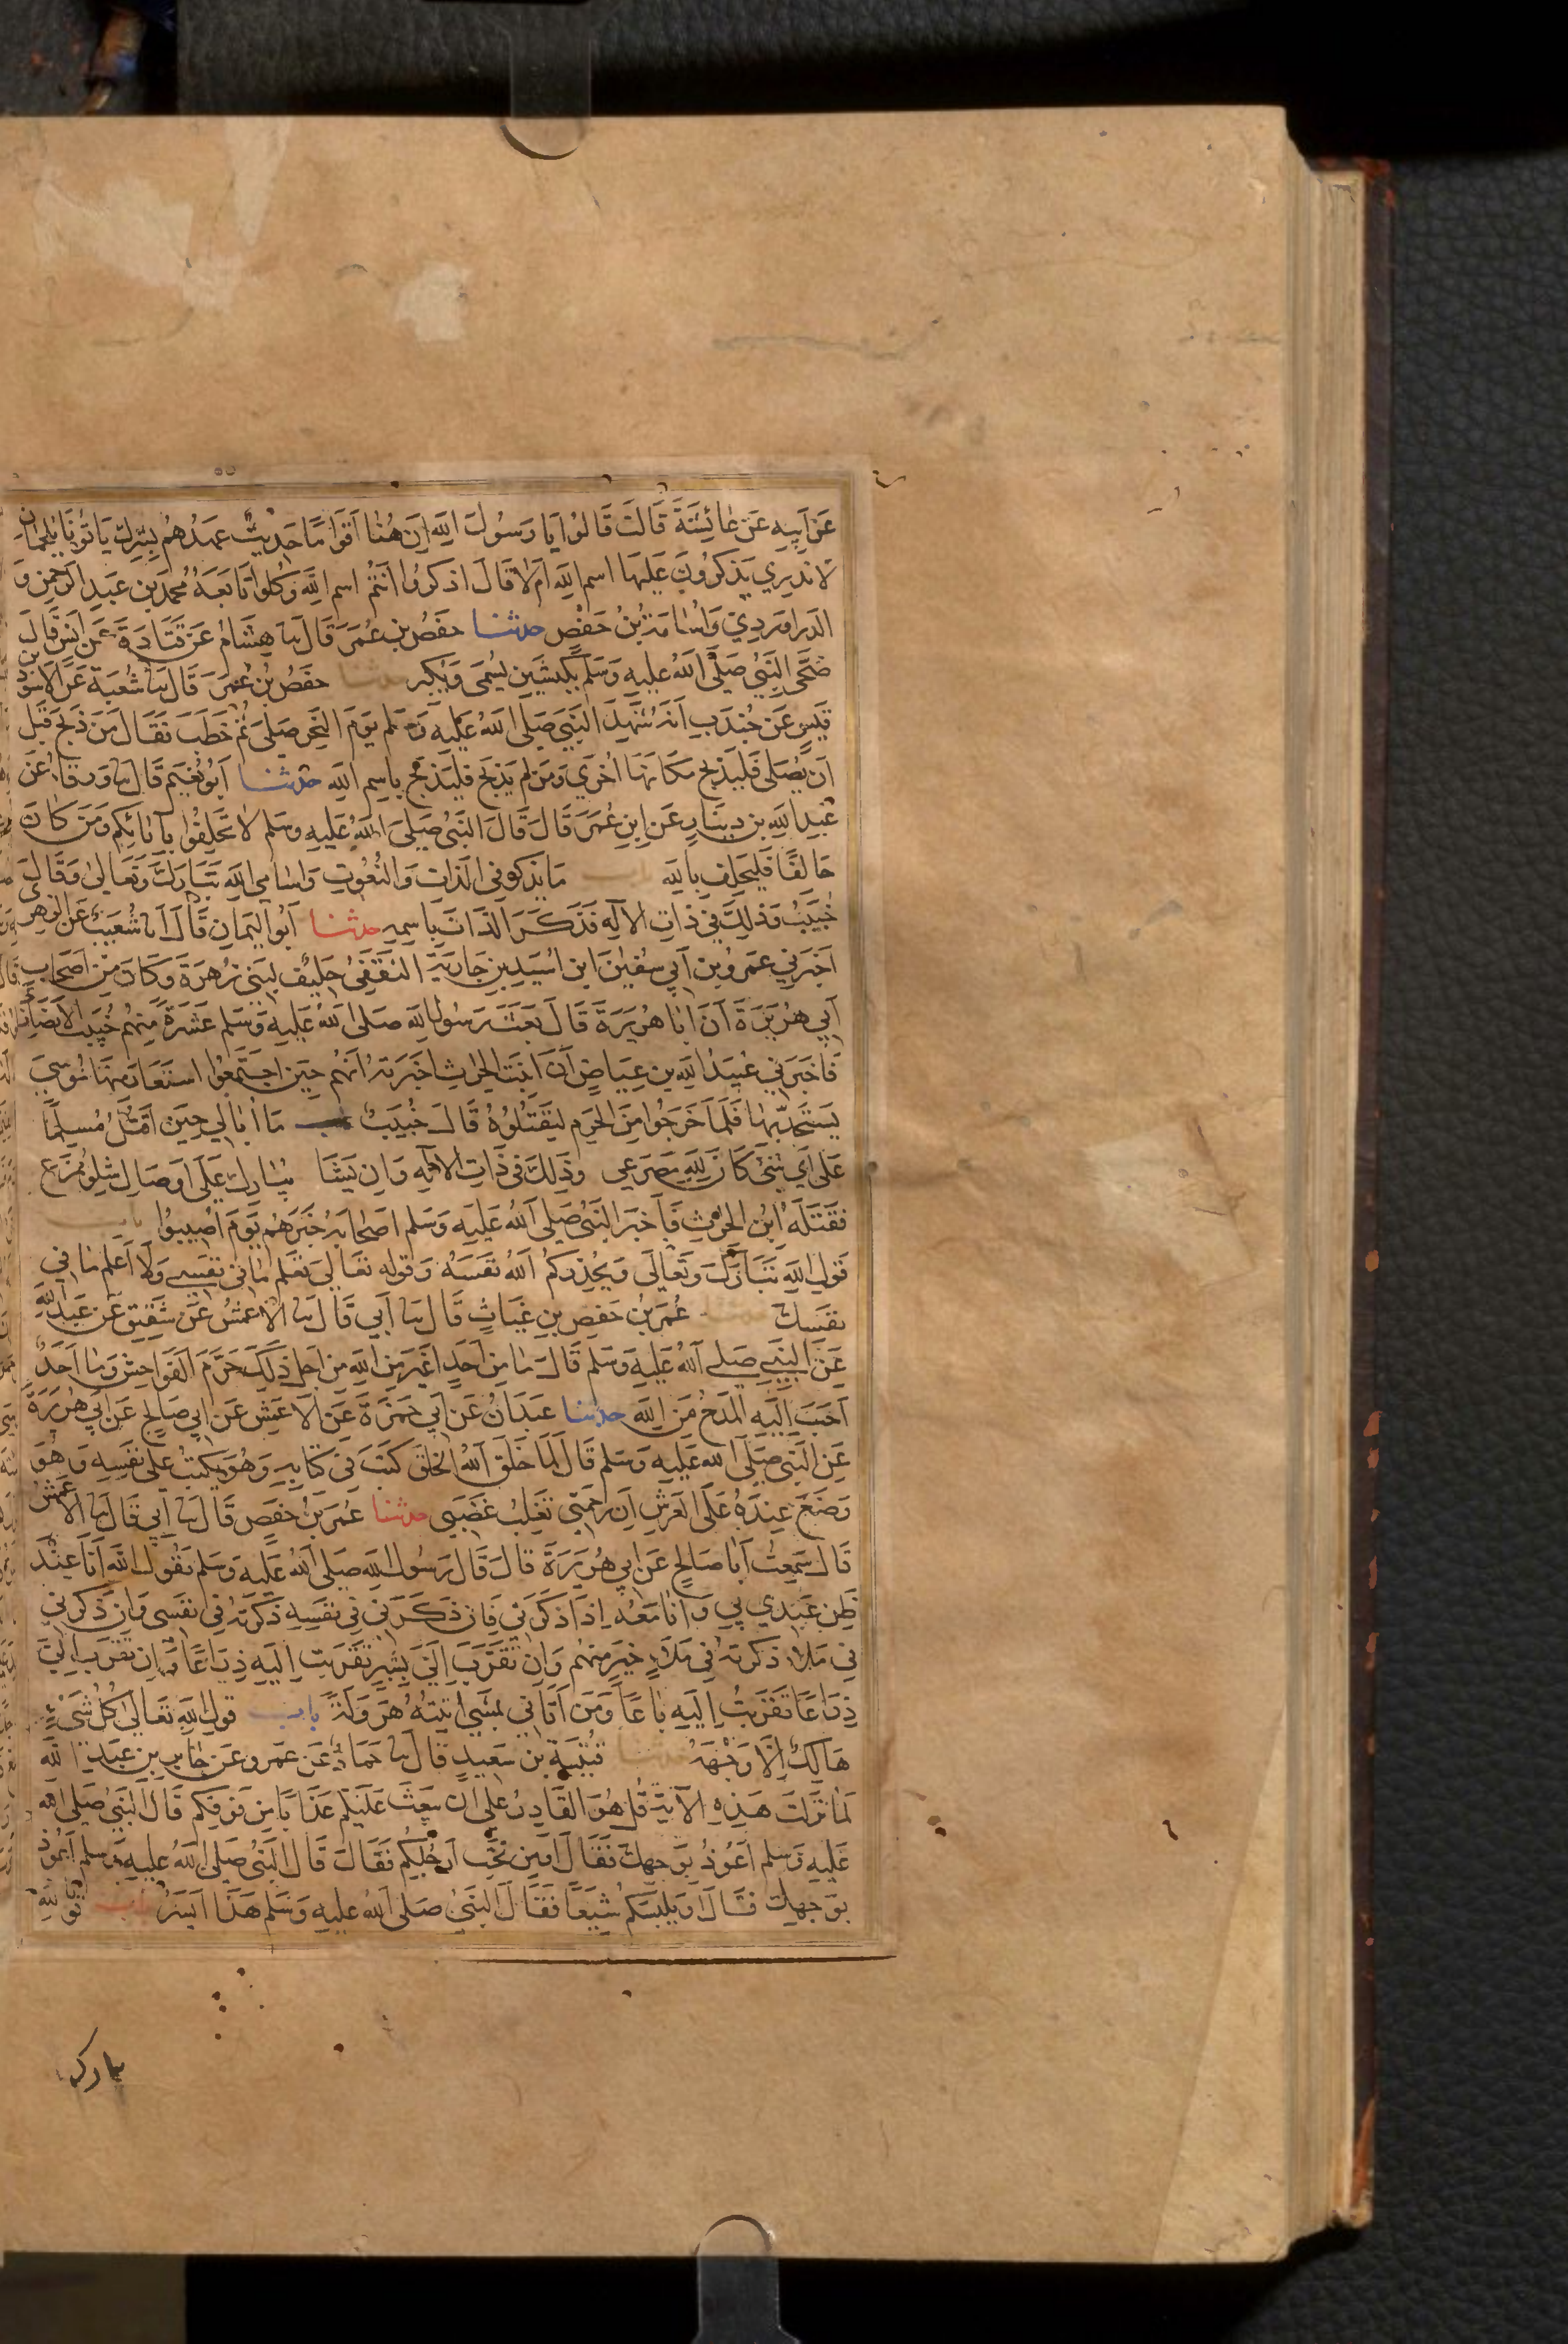 عن ابيه عن عائشة قالت قالوا يا رسول الله ان هنا اقواما حديث عهدهم بشرك ياتونا بلحمان
لا ندري يذكرون عليها اسم الله ام لا قال اذكروا انتم اسم الله وكلوا تابعه محمد بن عبد الرحمن و
الدراوردي واسامة بن حفص حدثنا حفص بن عمر قال ثنا هشام عن قتادة عن انس قال
ضحى النبي صلى الله عليه وسلم بكبشين يسمى ويكبر حدثنا حفص بن عمر قال ثنا شعبة عن الاسود بن
قيس عن جندب انه شهد النبي صلى الله عليه وسلم يوم النحر صلى ثم خطب فقال من ذبح قبل
ان يصلى فليذبح مكانها اخري ومن لم يذبح فليذبح باسم الله حدثنا ابو نعيم قال ثنا ورقاء عن
عبد الله بن دينار عن ابن عمر قال قال النبي صلى الله عليه وسلم لا تحلفوا بابائكم ومن كان
حالفا فليحلف بالله باب ما يذكر في الذات والنعوت واسامي الله تبارك وتعالى وقال
خبيب وذلك في ذات الاله فذكر الذات باسمه حدثنا ابو اليمان قال انا شعيب عن الزهري
اخبرني عمرو بن ابي سفين ابن اسيد بن جارية الثقفي حليف لبني زهرة وكان من اصحاب
ابي هريرة ان ابا هريرة قال بعث رسول الله صلى الله عليه وسلم عشرة منهم خبيب الانصاري
فاخبرني عبيد الله بن عياض ان ابنت الحرث اخبرته انهم حين اجتمعوا استعار منها موسي
يستحد بها فلما خرجوا من الحرم ليقتلوه قال خبيب ما ابالي حين اقتل مسلما
على اي شئ كان لله مصرعي وذلك في ذات الاله وان يشا يبارك على اوصال شلو ممزع
فقتله ابن الحرث فاخبر النبي صلى الله عليه وسلم اصحابه خبرهم يوم اصيبوا باب
قول الله تبارك وتعالى ويحذركم الله نفسه وقوله تعالى تعلم ما في نفسي ولا اعلم ما في
نفسك حدثنا عمر بن حفص بن غياث قال ثنا ابي قال ثنا الاعمش عن شقيق عن عبد الله
عن النبي صلى الله عليه وسلم قال ما من احد اغير من الله من اجل ذلك حرم الفواحش وما احد
احب اليه المدح من الله حدثنا عبدان عن ابي حمزة عن الاعمش عن ابي صالح عن ابي هريرة
عن النبي صلى الله عليه وسلم قال لما خلق الله الخلق كتب في كتابه وهو يكتب على نفسه وهو
وضع عنده على العرش ان رحمتي تغلب غضبي حدثنا عمر بن حفص قال ثنا ابي قال ثنا الاعمش
قال سمعت ابا صالح عن ابي هريرة قال قال رسول الله صلى الله عليه وسلم يقول الله انا عند
ظن عبدي بي وانا معه اذا ذكرني فان ذكرني في نفسه ذكرته في نفسي وان ذكرني
في ملا ذكرته في ملاء خير منهم وان تقرب الي بشبر تقربت اليه ذراعا وان تقرب الي
ذراعا تقربت اليه باعا ومن اتاني يمشي اتيته هرولة باب قول الله تعالى كل شيء
هالك الا وجهه حدثنا قتيبة بن سعيد قال ثنا حماد عن عمرو عن جابر بن عبد الله
لما نزلت هذه الاية قل هو القادر على ان يبعث عليكم عذابا من فوقكم قال النبي صلى الله
عليه وسلم اعوذ بوجهك فقال او من تحت ارجلكم فقال قال النبي صلى الله عليه وسلم اعوذ
بوجهك قال او يلبسكم شيعا فقال النبي صلى الله عليه وسلم هذا ايسر باب قول الله